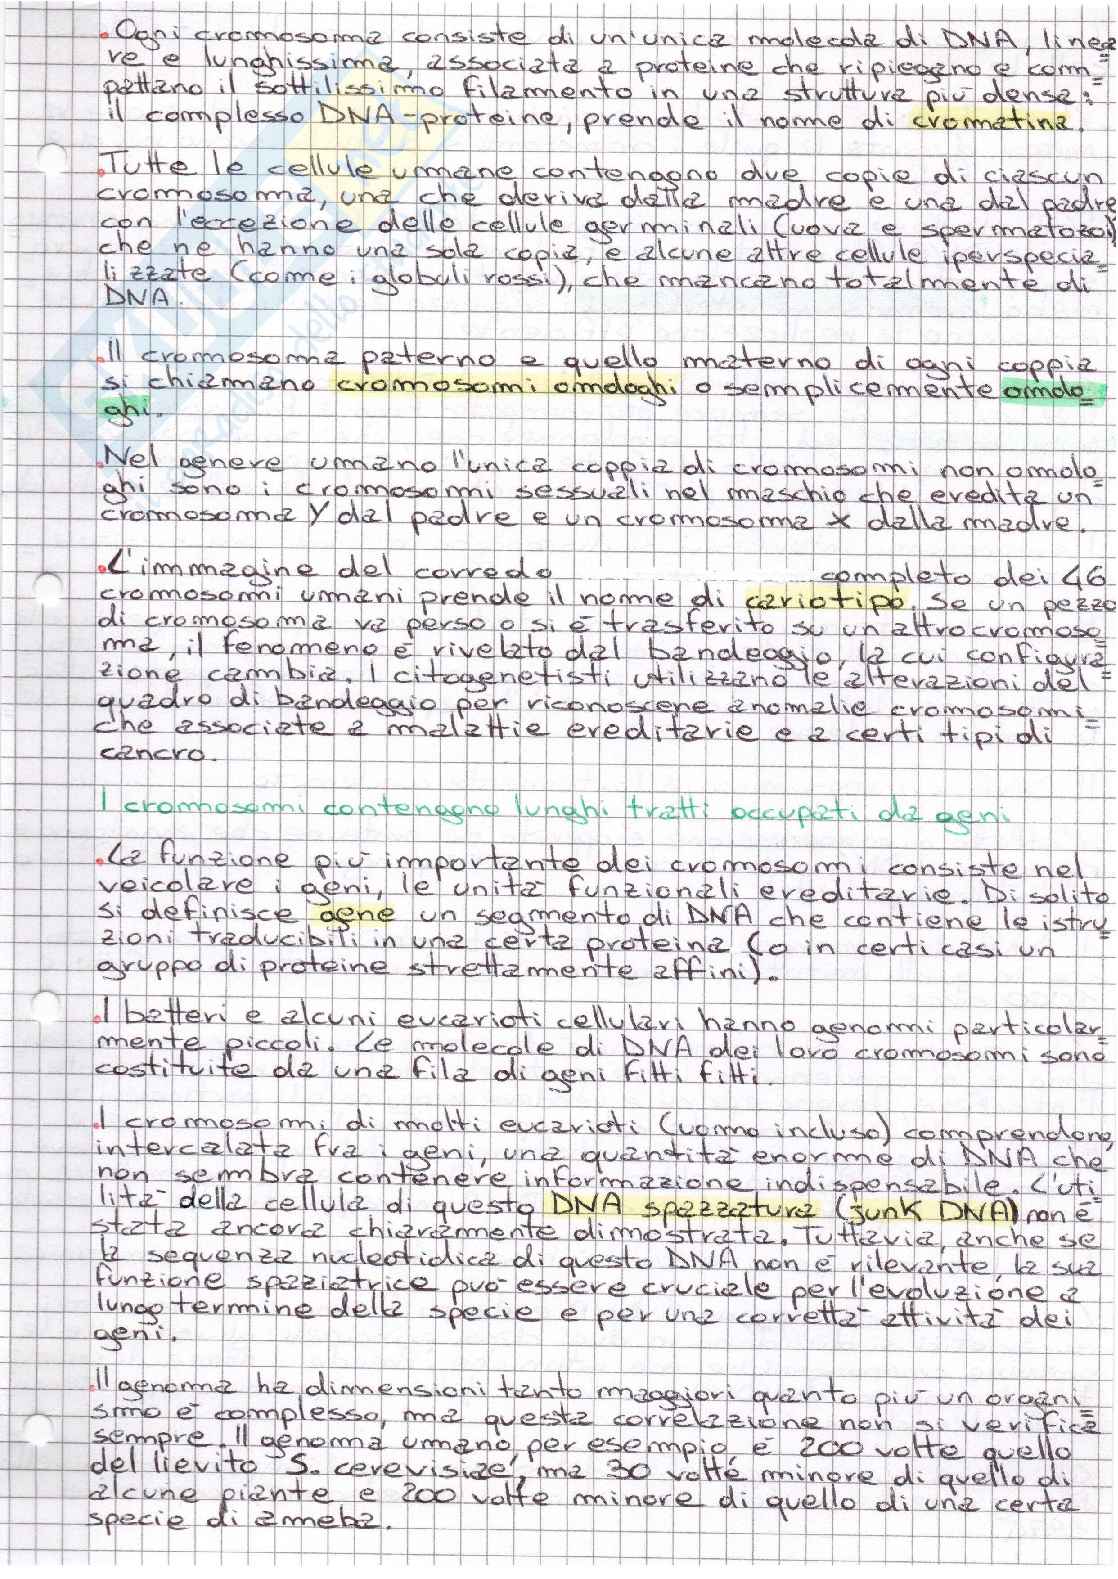 .Ogni cromosoma consiste di un'unica molecola di DNA, linea=
re e lunghissima, associata a proteine che ripiegano e com=
pattano il sottilissimo filamento in una struttura più densa:
il complesso DNA-proteine, prende il nome di cromatina.
.Tutte le cellule umane contengono due copie di ciascun
cromosoma, una che deriva dalla madre e una dal padre
con l'eccezione delle cellule germinali (uova e spermatozoi)
che ne hanno una sola copia, e alcune altre cellule iperspecia=
lizzate (come i globuli rossi), che mancano totalmente di
DNA.
.Il cromosoma paterno e quello materno di ogni coppia
si chiamano cromosomi omologhi o semplicemente omolo=
ghi.
.Nel genere umano l'unica coppia di cromosomi non omolo=
ghi sono i cromosomi sessuali nel maschio che eredita un
cromosoma Y dal padre e un cromosoma x dalla madre.
.L'immagine del corredo completo dei 46
cromosomi umani prende il nome di cariotipo. Se un pezzo
di cromosoma va perso o si è trasferito su un altro cromoso=
ma, il fenomeno è rivelato dal bandeggio, la cui configura=
zione cambia. I citogenetisti utilizzano le alterazioni del
quadro di bandeggio per riconoscene anomalie cromosomi=
che associate a malattie ereditarie e a certi tipi di
cancro.
I cromosomi contengono lunghi tratti occupati da geni
.La funzione più importante dei cromosomi consiste nel
veicolare i geni, le unità funzionali ereditarie. Di solito
si definisce gene un segmento di DNA che contiene le istru=
zioni traducibili in una certa proteina (o in certi casi un
gruppo di proteine strettamente affini).
.I batteri e alcuni eucarioti cellulari hanno genomi particolar=
mente piccoli. Le molecole di DNA dei loro cromosomi sono
costituite da una fila di geni fitti fitti.
.I cromosomi di molti eucarioti (uomo incluso) comprendono,
intercalata fra i geni, una quantità enorme di DNA che
non sembra contenere informazione indispensabile. L'uti=
lità della cellula di questo DNA spazzatura (junk DNA) non è
stata ancora chiaramente dimostrata. Tuttavia, anche se
la sequenza nucleotidica di questo DNA non è rilevante, la sua
funzione spaziatrice può essere cruciale per l'evoluzione a
lungo termine della specie e per una corretta attività dei
geni.
.Il genoma ha dimensioni tanto maggiori quanto più un organi=
smo è complesso, ma questa correlazione non si verifica
sempre. Il genoma umano, per esempio, è 200 volte quello
del lievito "S. cerevisiae", ma 30 volte minore di quello di
alcune piante e 200 volte minore di quello di una certa
specie di ameba.